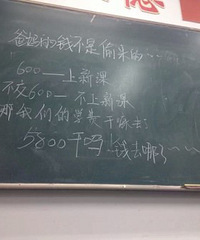 爸妈的钱不是偷来的……
600——上新课
不交600——不上新课
那我们的学费干嘛去了
5800干吗!钱去哪了~~~